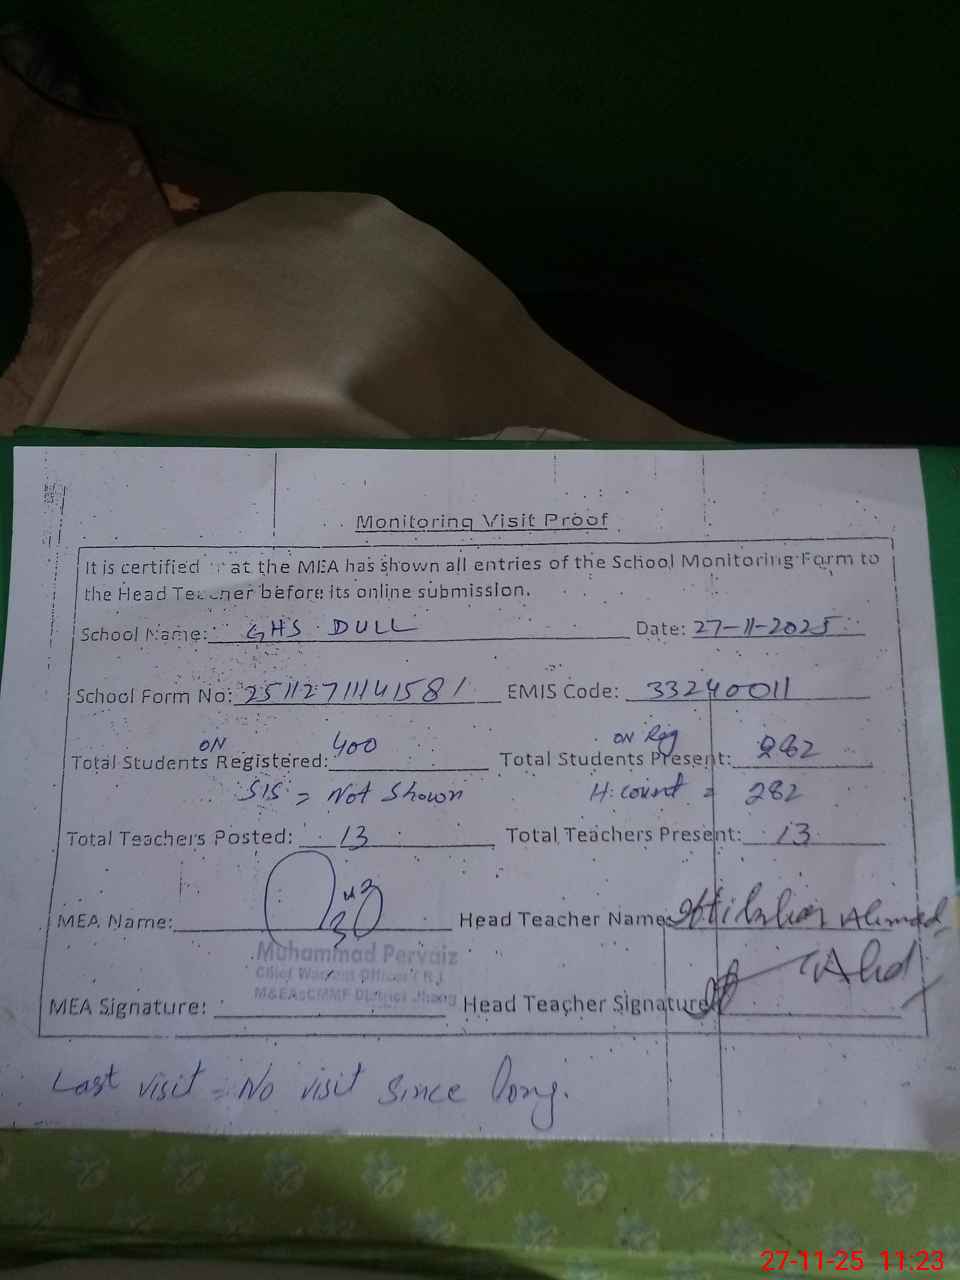 Monitoring Visit Proof
It is certified at the MEA has shown all entries of the School Monitoring Form to
the Head Teacher before its online submission.
School Name: GHS DULL Date: 27-11-2025
School Form No: EMIS Code: 33240011
ON ON Reg
Total Students Registered: 400 Total Students Present: 282
SIS = Not Shown H. count = 282
Total Teachers Posted: 13 Total Teachers Present: 13
MEA Name: Head Teacher Name: Ahmad
Muhammad Pervaiz
Chief Warrant Officer ( R )
M&EAsCMMF District Jhang
MEA Signature: Head Teacher Signature
Last visit = No visit since long.
27-11-25 11:23